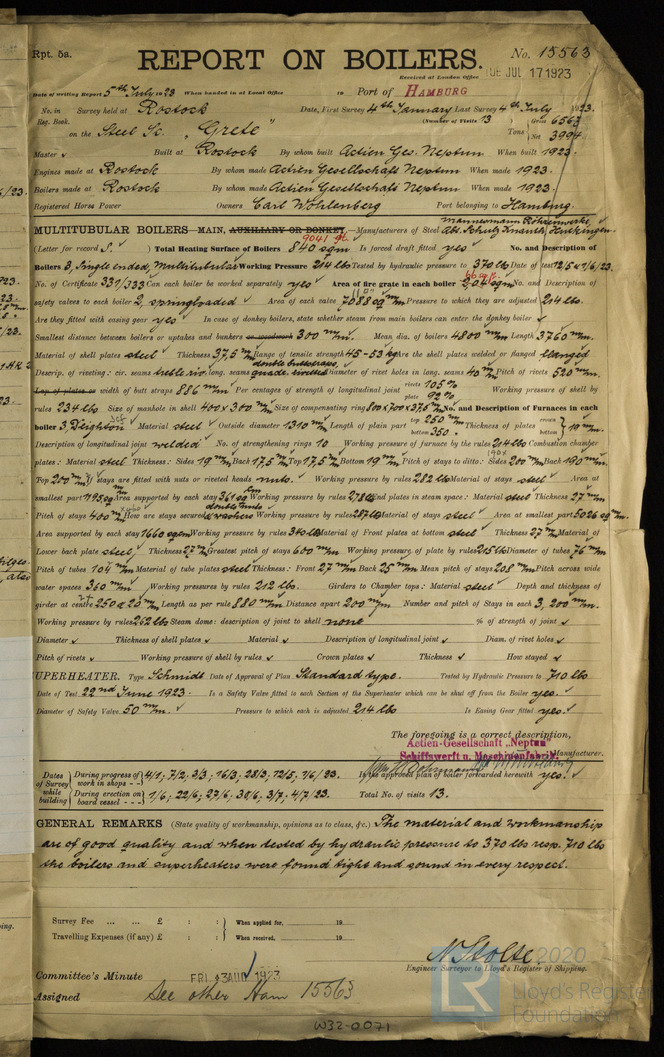 Rpt. 5a.
REPORT ON BOILERS.
No. 15563
Received at London Office TUE JUL 17 1923
Date of writing Report 5th July 1923 When handed in at Local Office 19 Port of HAMBURG
No. in Reg. Book. Survey held at Rostock Date, First Survey 4th January Last Survey 4th July 1923.
on the Steel Sc. "Grete" (Number of Visits 13) Tons Gross 6563 Net 3994
Master Built at Rostock By whom built Actien Ges. Neptun When built 1923.
Engines made at Rostock By whom made Actien Gesellschaft Neptun When made 1923.
Boilers made at Rostock By whom made Actien Gesellschaft Neptun When made 1923.
Registered Horse Power Owners Carl Wohlenberg Port belonging to Hamburg.
MULTITUBULAR BOILERS MAIN, AUXILIARY OR DONKEY.—Manufacturers of Steel Mannesmann Röhrenwerke, Abt. Schulz Knaudt, Huckingen.
(Letter for record S.) Total Heating Surface of Boilers 9041 ft. 840 sqm Is forced draft fitted yes No. and Description of
Boilers 3, Single ended, Multitubular Working Pressure 214 lbs Tested by hydraulic pressure to 370 lbs Date of test 12/5 & 1/6/23.
No. of Certificate 331/333 Can each boiler be worked separately yes Area of fire grate in each boiler No. and Description of
safety valves to each boiler 2, springloaded Area of each valve 7088 sqmm Pressure to which they are adjusted 214 lbs.
Are they fitted with easing gear yes In case of donkey boilers, state whether steam from main boilers can enter the donkey boiler
Smallest distance between boilers or uptakes and bunkers or woodwork 300 mm. Mean dia. of boilers 4800 mm Length 3760 mm.
Material of shell plates steel Thickness 37,5 mm Range of tensile strength 45-53 kg Are the shell plates welded or flanged flanged
Descrip. of riveting: cir. seams treble riv. long. seams double buttstraps, quadr. riveted Diameter of rivet holes in long. seams 40 mm Pitch of rivets 520 mm.
Lap of plates or width of butt straps 886 mm Per centages of strength of longitudinal joint rivets 105 % plate 92 % Working pressure of shell by
rules 234 lbs Size of manhole in shell 400 x 300 mm Size of compensating ring 800 x 700 x 37,5 mm No. and Description of Furnaces in each
boiler 3, Deighton Material steel Outside diameter 1310 mm Length of plain part top 250 mm bottom 350. Thickness of plates crown bottom 19 mm.
Description of longitudinal joint welded No. of strengthening rings 10 Working pressure of furnace by the rules 214 lbs Combustion chamber
plates: Material steel Thickness: Sides 19 mm Back 17,5 mm Top 17,5 mm Bottom 19 mm Pitch of stays to ditto: Sides 200 mm Back 190 mm.
Top 200 mm If stays are fitted with nuts or riveted heads nuts. Working pressure by rules 282 lbs Material of stays steel Area at
smallest part Area supported by each stay 361 Working pressure by rules 278 lbs End plates in steam space: Material steel Thickness 27 mm
Pitch of stays 400 mm How are stays secured double nuts & washers Working pressure by rules 287 lbs Material of stays steel Area at smallest part 5026 sqmm.
Area supported by each stay 1660 sqcm Working pressure by rules 340 lbs Material of Front plates at bottom steel Thickness 27 mm Material of
Lower back plate steel Thickness 27 mm Greatest pitch of stays 600 mm Working pressure of plate by rules 215 lbs Diameter of tubes 76 mm
Pitch of tubes 104 mm Material of tube plates steel Thickness: Front 27 mm Back 25 mm Mean pitch of stays 208 mm Pitch across wide
water spaces 360 mm Working pressures by rules 212 lbs. Girders to Chamber tops: Material steel Depth and thickness of
girder at centre 250 a 25 mm Length as per rule 880 mm Distance apart 200 mm Number and pitch of Stays in each 3, 200 mm.
Working pressure by rules 262 lbs Steam dome: description of joint to shell none % of strength of joint
Diameter Thickness of shell plates Material Description of longitudinal joint Diam. of rivet holes
Pitch of rivets Working pressure of shell by rules Crown plates Thickness How stayed
UPERHEATER. Type Schmidt Date of Approval of Plan Standard type. Tested by Hydraulic Pressure to 710 lbs
Date of Test 22nd June 1923. Is a Safety Valve fitted to each Section of the Superheater which can be shut off from the Boiler yes.
Diameter of Safety Valve 50 mm. Pressure to which each is adjusted 214 lbs Is Easing Gear fitted yes.
The foregoing is a correct description,
Actien-Gesellschaft „Neptun" Manufacturer.
Schiffswerft u. Maschinenfabrik.
Dates of Survey while building During progress of work in shops - - 4/1; 7/2; 3/3; 16/3; 28/3; 12/5; 1/6/23. Is the approved plan of boiler forwarded herewith yes.
During erection on board vessel - - - 1/6; 22/6; 27/6; 30/6; 3/7; 4/7/23. Total No. of visits 13.
GENERAL REMARKS (State quality of workmanship, opinions as to class, &c.) The material and workmanship
are of good quality and when tested by hydraulic pressure to 370 lbs resp. 710 lbs
the boilers and superheaters were found tight and sound in every respect.
Survey Fee ... ... £ : : When applied for, 19
Travelling Expenses (if any) £ : : When received, 19
N Stolte
Engineer Surveyor to Lloyd's Register of Shipping.
Committee's Minute FRI. 3 AUG 1923
Assigned See other Ham 15563
W32-0071
2020
LR
Lloyd's Register
Foundation